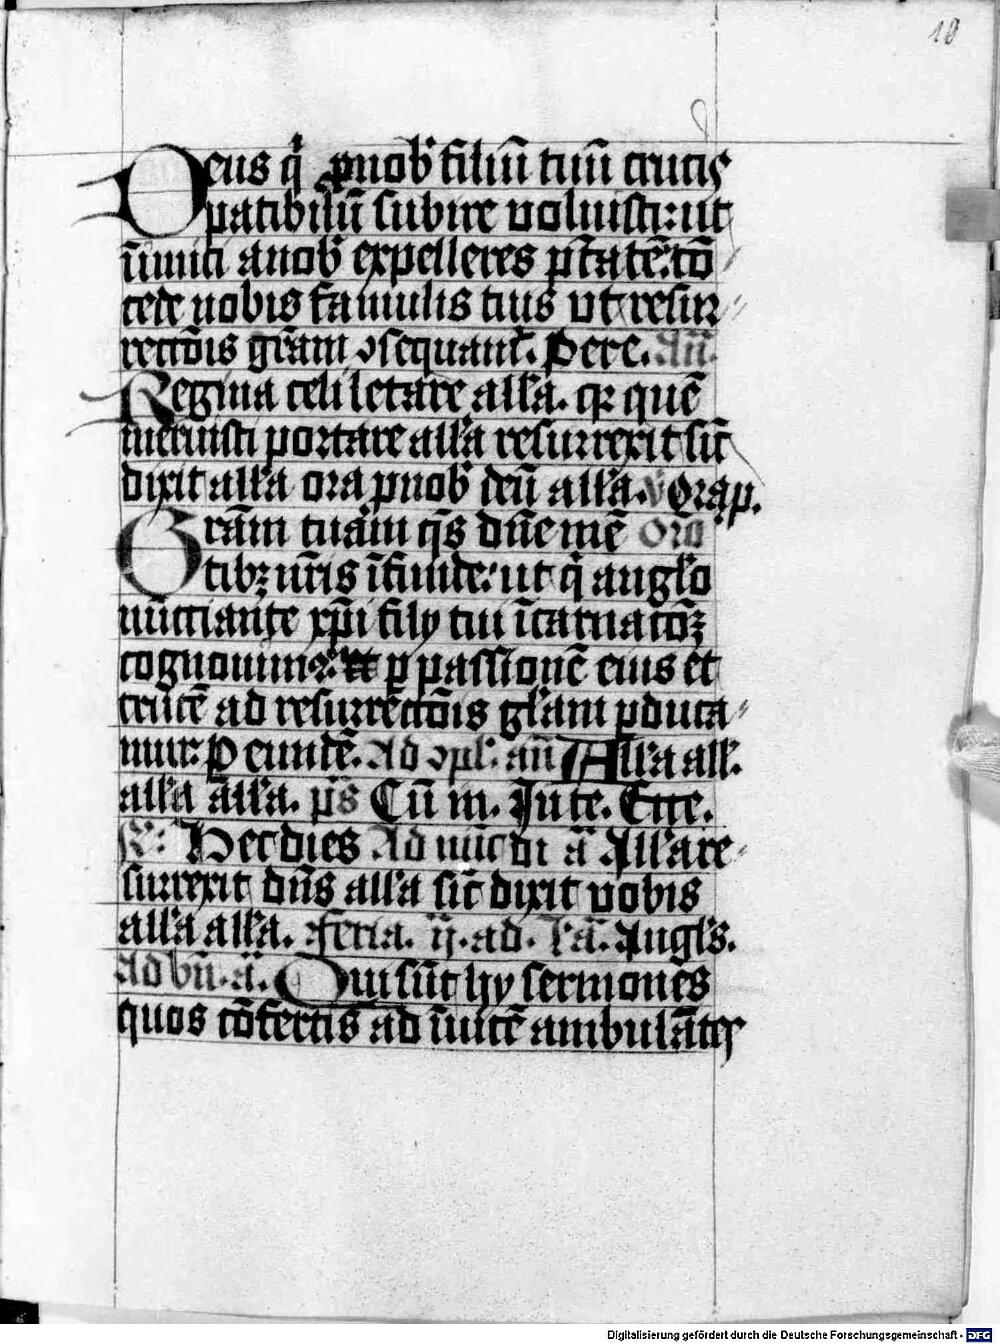 10
Deus q̇ ꝓnob̄ filiū tuū crucis
patibilū subire voluisti: ut
īimici anob̄ expelleres ptātē: cō
cede nobis famulis tuis ut resur
rectōis grām ↄsequant᷑. Per e. An̄.
Regina celi letare alla. qꝛ quē
meruisti portare alla resurrexit sic̄
dixit alla ora ꝓnob̄ deū alla. v̄ Ora p.
Grām tuam q̄s dn̄e mē Ora
tibꝫ nr̄is īfunde: ut q̇ anglo
nūctiante xp̄i filÿ tui īcarnatōꝫ
cognouimꝰ. p passionē eius et
crucē ad resurrectōis glam ꝑduca
mur: P eundē. Ad ↄpl. an̄ Alla all.
alla alla. ps̄ Cū in. In te. Ecce.
Hec dies Ad nūc di ā Alla re
surrexit dn̄s alla sic̄ dixit vobis
alla alla. feria. ij. ad. lā. Angls.
Ad bn̄. ā. Qui sūt hÿ sermones
quos cōfertis ad īuicē ambulātes
Digitalisierung gefördert durch die Deutsche Forschungsgemeinschaft - DFG